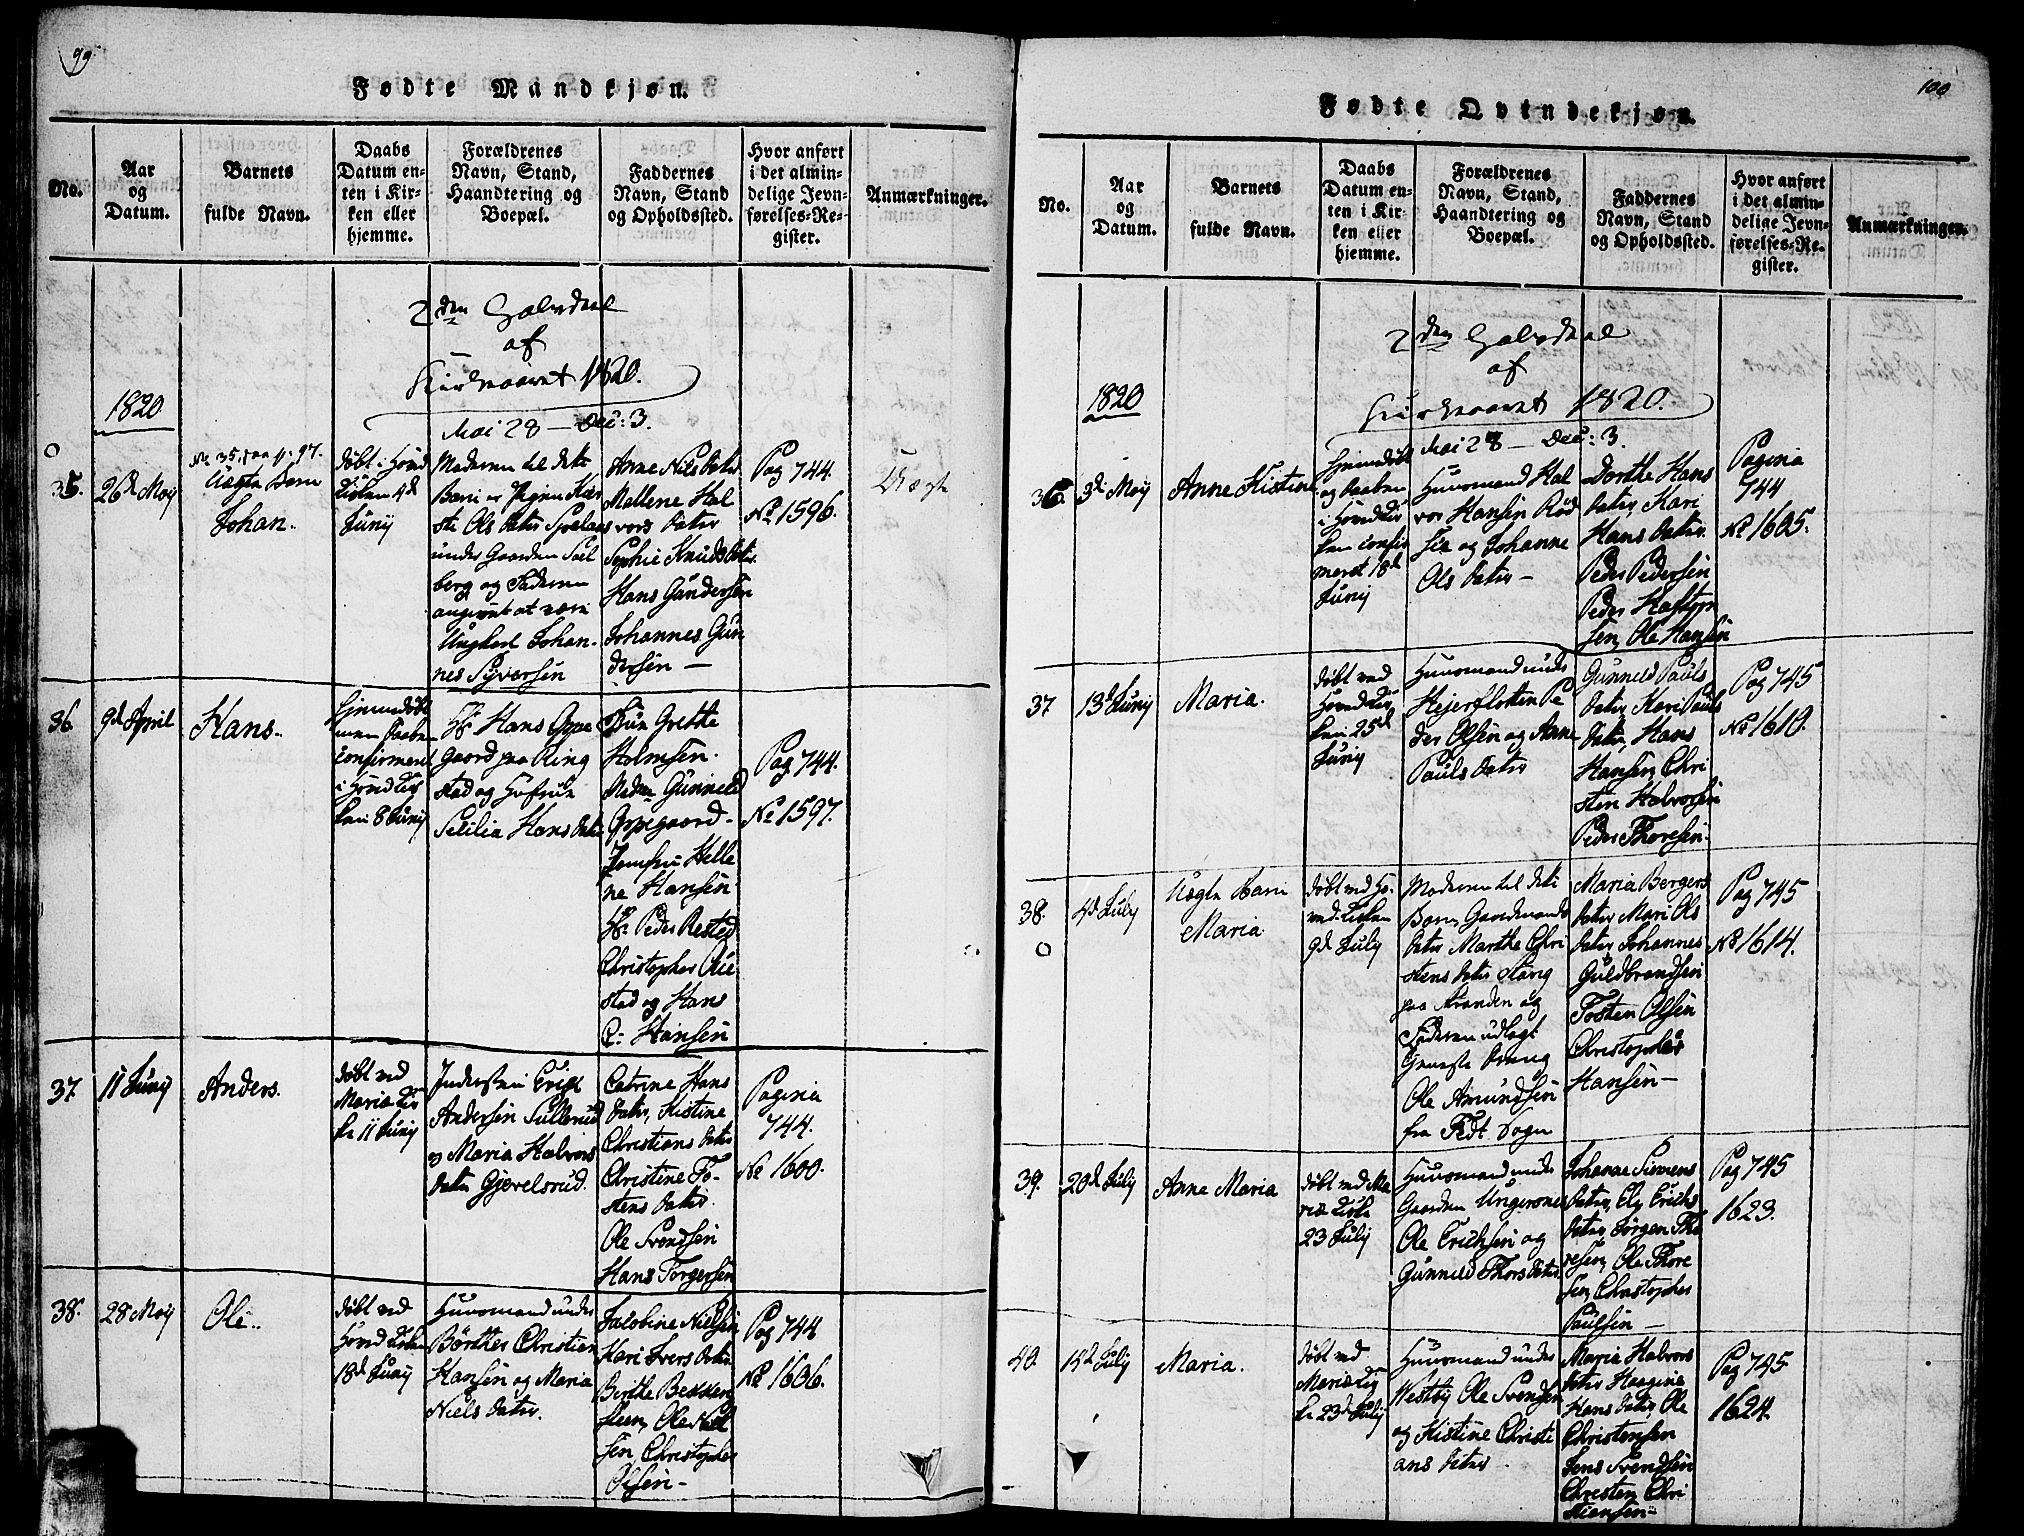 99
Fødte Mandkjøn.
No.
Aar
og
Datum.
Barnets
fulde Navn.
Daabs
Datum en-
ten i Kir-
ken eller
hjemme.
Forældrenes
Navn, Stand,
Haandtering og
Boepæl.
Faddernes
Navn, Stand
og Opholdssted.
Hvor anført
i det almin-
delige Jevn-
førelses-Re-
gister.
Anmærkninger.
2den Halvdeel
af
Kirkeaaret 1820.
Mai 28 — Dec: 3.
1820
35.
26d Maij
No 35, paa p: 97.
Uægte Barn
Johan.
døbt i Hovind
Kirken 4d
Junij
Moderen til dette
Barn er Pigen Kier
sti Ols datter
under Gaarden Sol
berg og Faderen
angivet at være
Ungkarl Johan-
nes Syversen
Anne Nils datter
Mallene Hal
vors datter
Sophie Knuds datter
Hans Gundersen
Johannes Gun
dersen —
Pag 744.
No 1596.
Uægte
36
9d April
Hans.
Hjemmedøbt
men Daaben
confirmeret
i Hovind Kir
ken 8 Junij
Hr Hans Oppe
gaard paa Ring
stad og Hustrue
Sicilia Hans datter
Frue Grethe
Holmsen.
Madm Gunneld
Oppegaard-
Jomfru Helle
ne Hansen
Hr Peder Rested
Christopher Rue
stad og Hans
C: Hansen
Pag 744.
No 1597.
37
11 Junij
Anders.
døbt ved
Maria Kir
ke 11 Junij
Inderst Erich
Andersen Sullerud
og Maria Halvors
datter Gjevelsrud.
Catrine Hans
datter, Kistine
Christians datter
Christine To-
stens datter
Ole Svendsen
Hans Torgersen
Pagina
744.
No 1600.
38.
28 Maij
Ole.
døbt ved
Hovind Kirken
18d Junij
Huusmand under
Børther Christian
Hansen og Maria
Niels datter.
Jacobine Nielsen
Kari Ivers datter
Berthe Bekken
steen, Ole Niel
sen, Christopher
Olsen-
Pag 744
No 1606.
100
Fødte Qvindekjøn.
No.
Aar
og
Datum.
Barnets
fulde Navn.
Daabs
Datum en-
ten i Kir-
ken eller
hjemme.
Forældrenes
Navn, Stand,
Haandtering og
Boepæl.
Faddernes
Navn, Stand
og Opholdssted.
Hvor anført
i det almin-
delige Jevn-
førelses-Re-
gister.
Anmærkninger.
2den Halvdeel
af
Kirkeaaret 1820.
Mai 28 — Dec: 3.
1820
36.
3d Maij
Anne Kistine
Hjemmedøbt
og Daaben
i Hovind Kir
ken confir
meret 18d
Junij
Huusmand Hal
vor Hansen Rød
sie og Johanne
Ols datter —
Dorthe Hans
datter, Kari
Hans datter
Peder Pedersen
Peder
sen, Ole Hansen
Pagina
744
No 1605.
37
13d Junij
Maria.
døbt ved
Hovind Kir
ken 25d
Junij
Huusmand under
Hejerflotten Pe
der Olsen og Anne
Pauls datter
Gunneld Pauls
datter, Kari Pauls
datter, Hans
Hansen, Chri
sten Halvorsen
Peder Thoresen.
Pag 745
No 1610.
38.
4d Julij
Uægte Barn
Maria
døbt ved Ho-
vind Kirken
9d Julij
Moderen til dette
Barn, Gaardmands
datter Marthe Chri
stens datter Stang
paa Stranden og
Faderen udlagt
Gneeste Dreng
Ole Amundsen
fra Fedt Sogn
Maria Bergers
datter, Mari Ols
datter, Johannes
Guldbrandsen
Tosten Olsen
Christopher
Hansen—
Pag 745
No 1614.
39.
20d Julij
Anne Maria
døbt ved Ma
ria Kirke
23 Julij
Huusmand under
Gaarden Ungersnes
Ole Erichsen og
Gunneld Thors datter.
Johanne Simens
datter, Ely Erichs
datter, Jørgen Tho
resen, Ole Thore
sen, Christopher
Paulsen —
Pag 745
1623.
40.
Julij
Maria.
døbt ved
Maria Kir
ke 23d Julij
Huusmand under
Westby Ole Svendsen
og Kistine Christi
ans datter.
Maria Halvors
datter, Haagine
Hans datter, Ole
Christensen
Jens Svendsen
Christen Chri
stiansen-
Pag 745
1624.